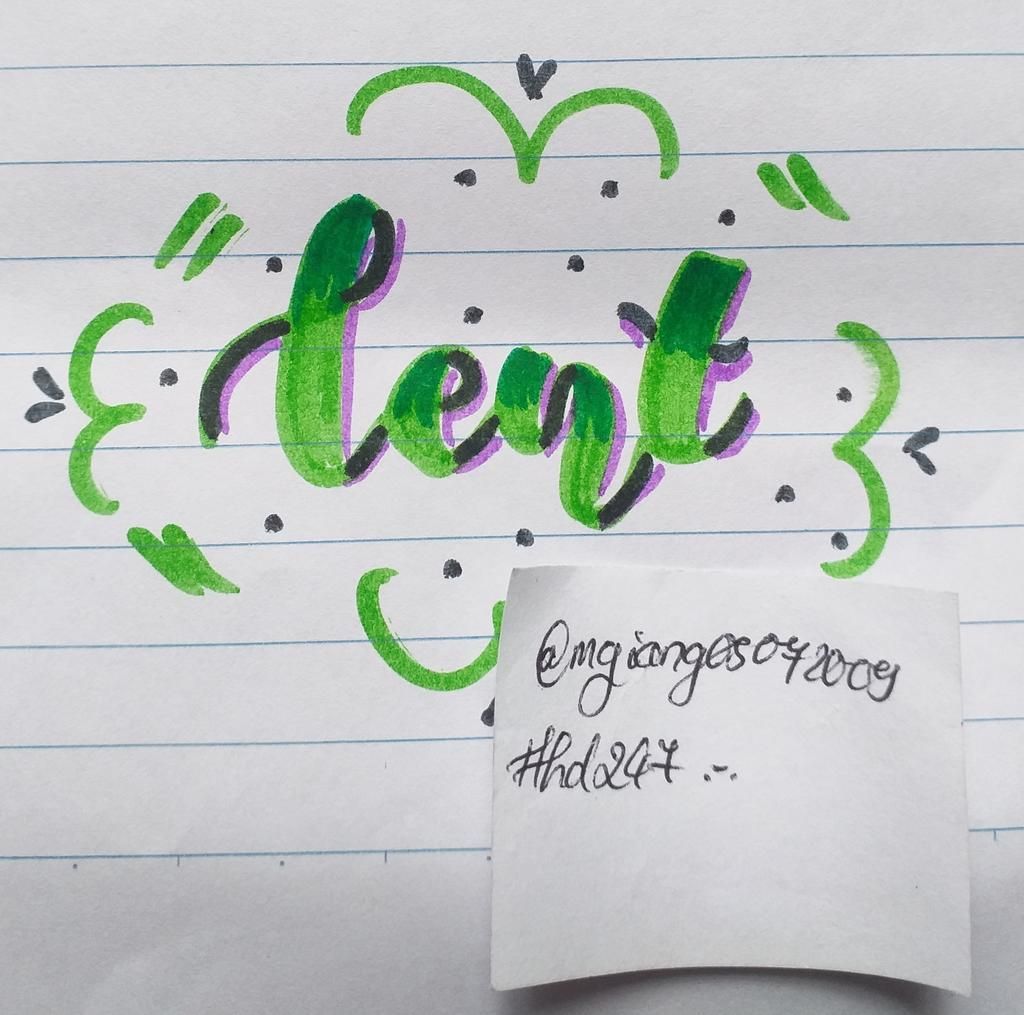 lent
@mgiang05072009
#hd247 .-.